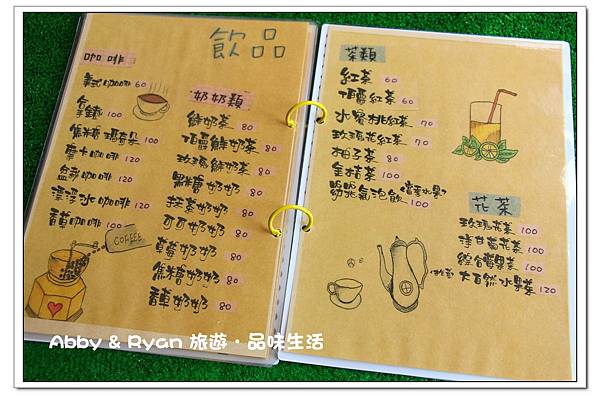 飲品
咖啡
美式咖啡 60
拿鐵 100
焦糖瑪奇朵 100
摩卡咖啡 120
漂浮冰咖啡 120
香草咖啡 100
COFFEE
奶奶類
鮮奶茶 80
頂級鮮奶茶 80
玫瑰鮮奶茶 80
黑糖奶奶 80
抹茶奶奶 80
可可奶奶 80
草莓奶奶 80
焦糖奶奶 80
香草奶奶 80
茶類
紅茶 60
頂級紅茶 60
水蜜桃紅茶 70
玫瑰花紅茶 70
柚子茶 80
金桔茶 100
氣泡飲 100
花茶
玫瑰花茶 100
洋甘菊花茶 100
綜合花果茶 100
大自然水果茶 120
Abby & Ryan 旅遊‧品味生活